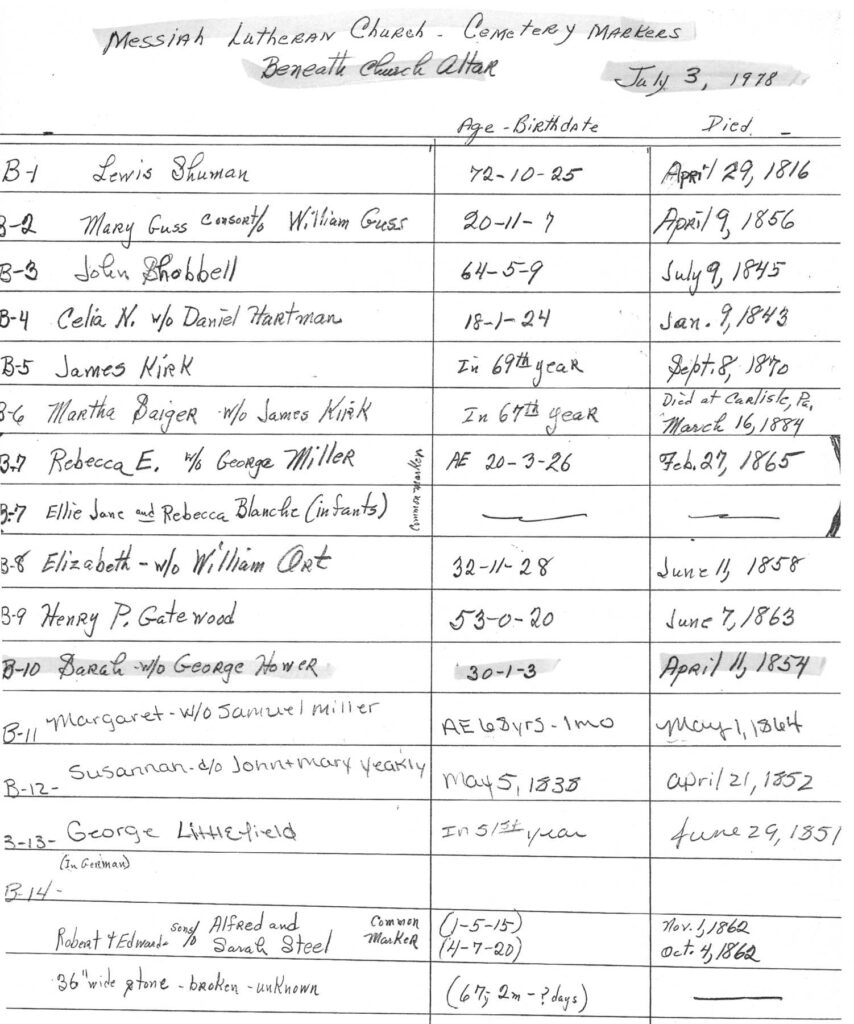 Messiah Lutheran Church - Cemetery Markers
Beneath Church Altar
July 3, 1978
Age - Birthdate Died
B-1 Lewis Shuman 72-10-25 April 29, 1816
B-2 Mary Guss Consort/o William Guss 20-11-7 April 9, 1856
B-3 John Shobbell 64-5-9 July 9, 1845
B-4 Celia N. w/o Daniel Hartman 18-1-24 Jan. 9, 1843
B-5 James Kirk In 69th year Sept. 8, 1870
B-6 Martha Saiger w/o James Kirk In 67th year Died at Carlisle, Pa, March 16, 1884
B-7 Rebecca E. w/o George Miller AE 20-3-26 Feb. 27, 1865
B-7 Ellie Jane and Rebecca Blanche (infants)
(common marker)
B-8 Elizabeth - w/o William Ort 32-11-28 June 11, 1858
B-9 Henry P. Gatewood 53-0-20 June 7, 1863
B-10 Sarah - w/o George Hower 30-1-3 April 11, 1854
B-11 Margaret - w/o Samuel Miller AE 68 yrs - 1 mo May 1, 1864
B-12- Susannan - d/o John + Mary Yeakly May 5, 1838 April 21, 1852
B-13- George Littlefield In 51st year June 29, 1851
(In German)
B-14-
Robert + Edward sons/o Alfred and Sarah Steel Common Marker (1-5-15) Nov. 1, 1862
(4-7-20) Oct. 4, 1862
36" wide stone - broken - unknown (67; 2m - ? days)